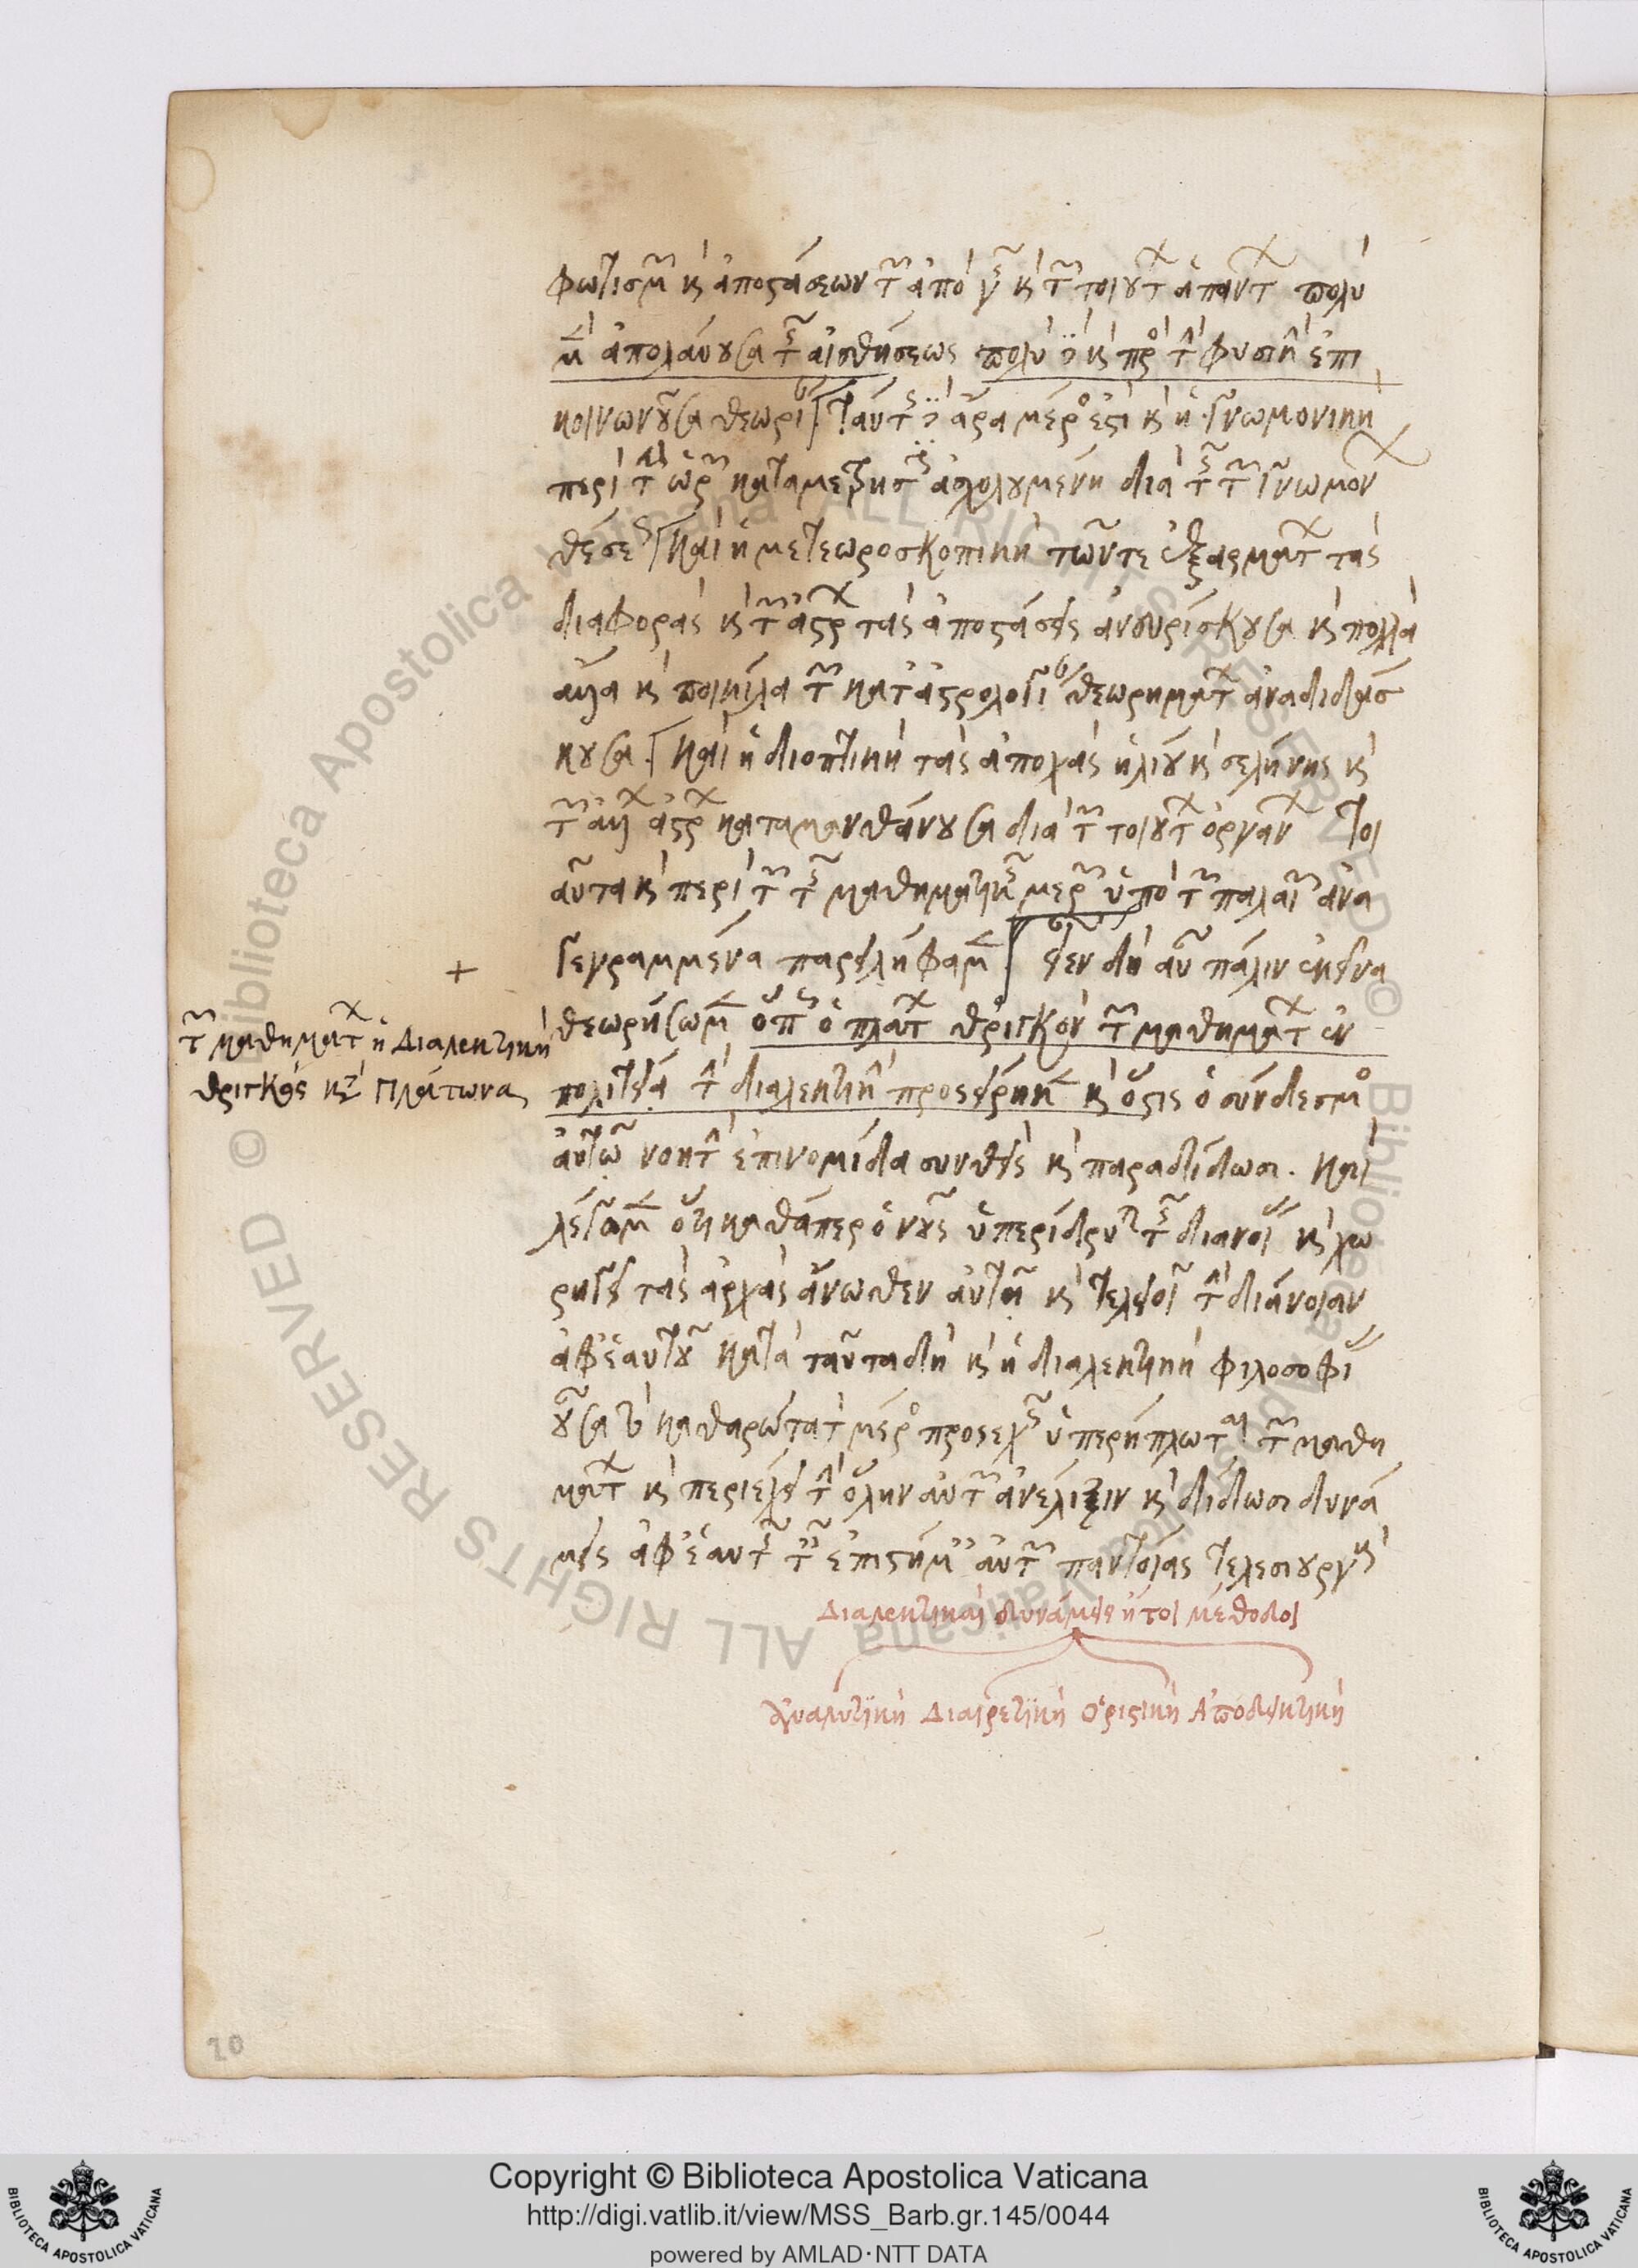 φωτισμῶν καὶ ἀποστάσεων τῶν ἀπὸ γῆς καὶ τῶν τοιούτων ἁπάντων πολὺ
μὲν ἀπολαύουσα τῆς αἰσθήσεως πολὺ δὲ καὶ πρὸς τὴν φυσικὴν ἐπι
κοινωνοῦσα θεωρίαν. ταύτης δὲ ἄρα μέρος ἐστὶ καὶ ἡ γνωμονικὴ
περὶ τὴν ὡρῶν καταμέτρησιν ἀσχολουμένη διὰ τῆς τῶν γνωμόνων
θέσεως καὶ ἡ μετεωροσκοπικὴ τῶν τε ἐξαρμάτων τὰς
διαφορὰς καὶ τῶν ἄστρων τὰς ἀποστάσεις ἀνευρίσκουσα καὶ πολλὰ
ἄλλα καὶ ποικίλα τῶν κατ' ἀστρολογίαν θεωρημάτων ἀναδιδάσ
κουσα. καὶ ἡ διοπτικὴ τὰς ἀποχὰς ἡλίου καὶ σελήνης καὶ
τῶν ἄλλων ἄστρων καταμανθάνουσα διὰ τῶν τοιούτων ὀργάνων τοι
αῦτα καὶ περὶ τῶν τῆς μαθηματικῆς μερῶν ὑπὸ τῶν παλαιῶν ἀνα
γεγραμμένα παρειλήφαμεν. φέρε δὴ οὖν πάλιν ἐκεῖνα
θεωρήσωμεν ὅπως ὁ πλάτων θριγκὸν τῶν μαθημάτων ἐν
τῶν μαθημάτων ἡ Διαλεκτικὴ
θριγκὸς κατὰ Πλάτωνα
πολιτείᾳ τὴν διαλεκτικὴν προσείρηκεν καὶ ὅστις ὁ σύνδεσμος
αὐτῶν ὃν ὁ τὴν ἐπινομίδα συνθεὶς καὶ παραδίδωσι. καὶ
λέγωμεν ὅτι καθάπερ ὁ νοῦς ὑπερίδρυται τῆς διανοίας καὶ χο
ρηγεῖ τὰς ἀρχὰς ἄνωθεν αὐτῇ καὶ τελειοῖ τὴν διάνοιαν
ἀφ' ἑαυτοῦ κατὰ ταῦτα δὴ καὶ ἡ διαλεκτικὴ φιλοσοφίας
οὖσα τὸ καθαρώτατον μέρος προσεχῶς ὑπερήπλωται τῶν μαθη
μάτων καὶ περιέχει τὴν ὅλην αὐτῶν ἀνέλιξιν καὶ δίδωσι δυνά
μεις ἀφ' ἑαυτῆς ταῖς ἐπιστήμαις αὐτῶν παντοίας τελεσιουργοὺς καὶ
Διαλεκτικαὶ δυνάμεις ἤτοι μέθοδοι
Ἀναλυτικὴ Διαιρετικὴ Ὁριστικὴ Ἀποδεικτικὴ
20
Copyright © Biblioteca Apostolica Vaticana
http://digi.vatlib.it/view/MSS_Barb.gr.145/0044
powered by AMLAD·NTT DATA